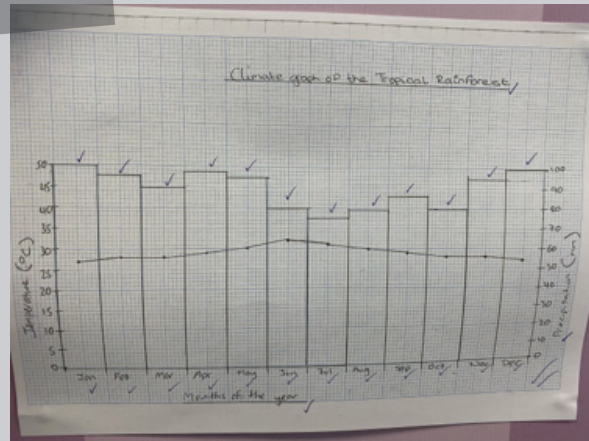 Climate graph of the Tropical Rainforest
50
45
40
35
30
25
20
15
10
5
0
Temperature (°C)
100
90
80
70
60
50
40
30
20
10
0
Precipitation (mm)
Jan Feb Mar Apr May Jun Jul Aug Sep Oct Nov Dec
Months of the year